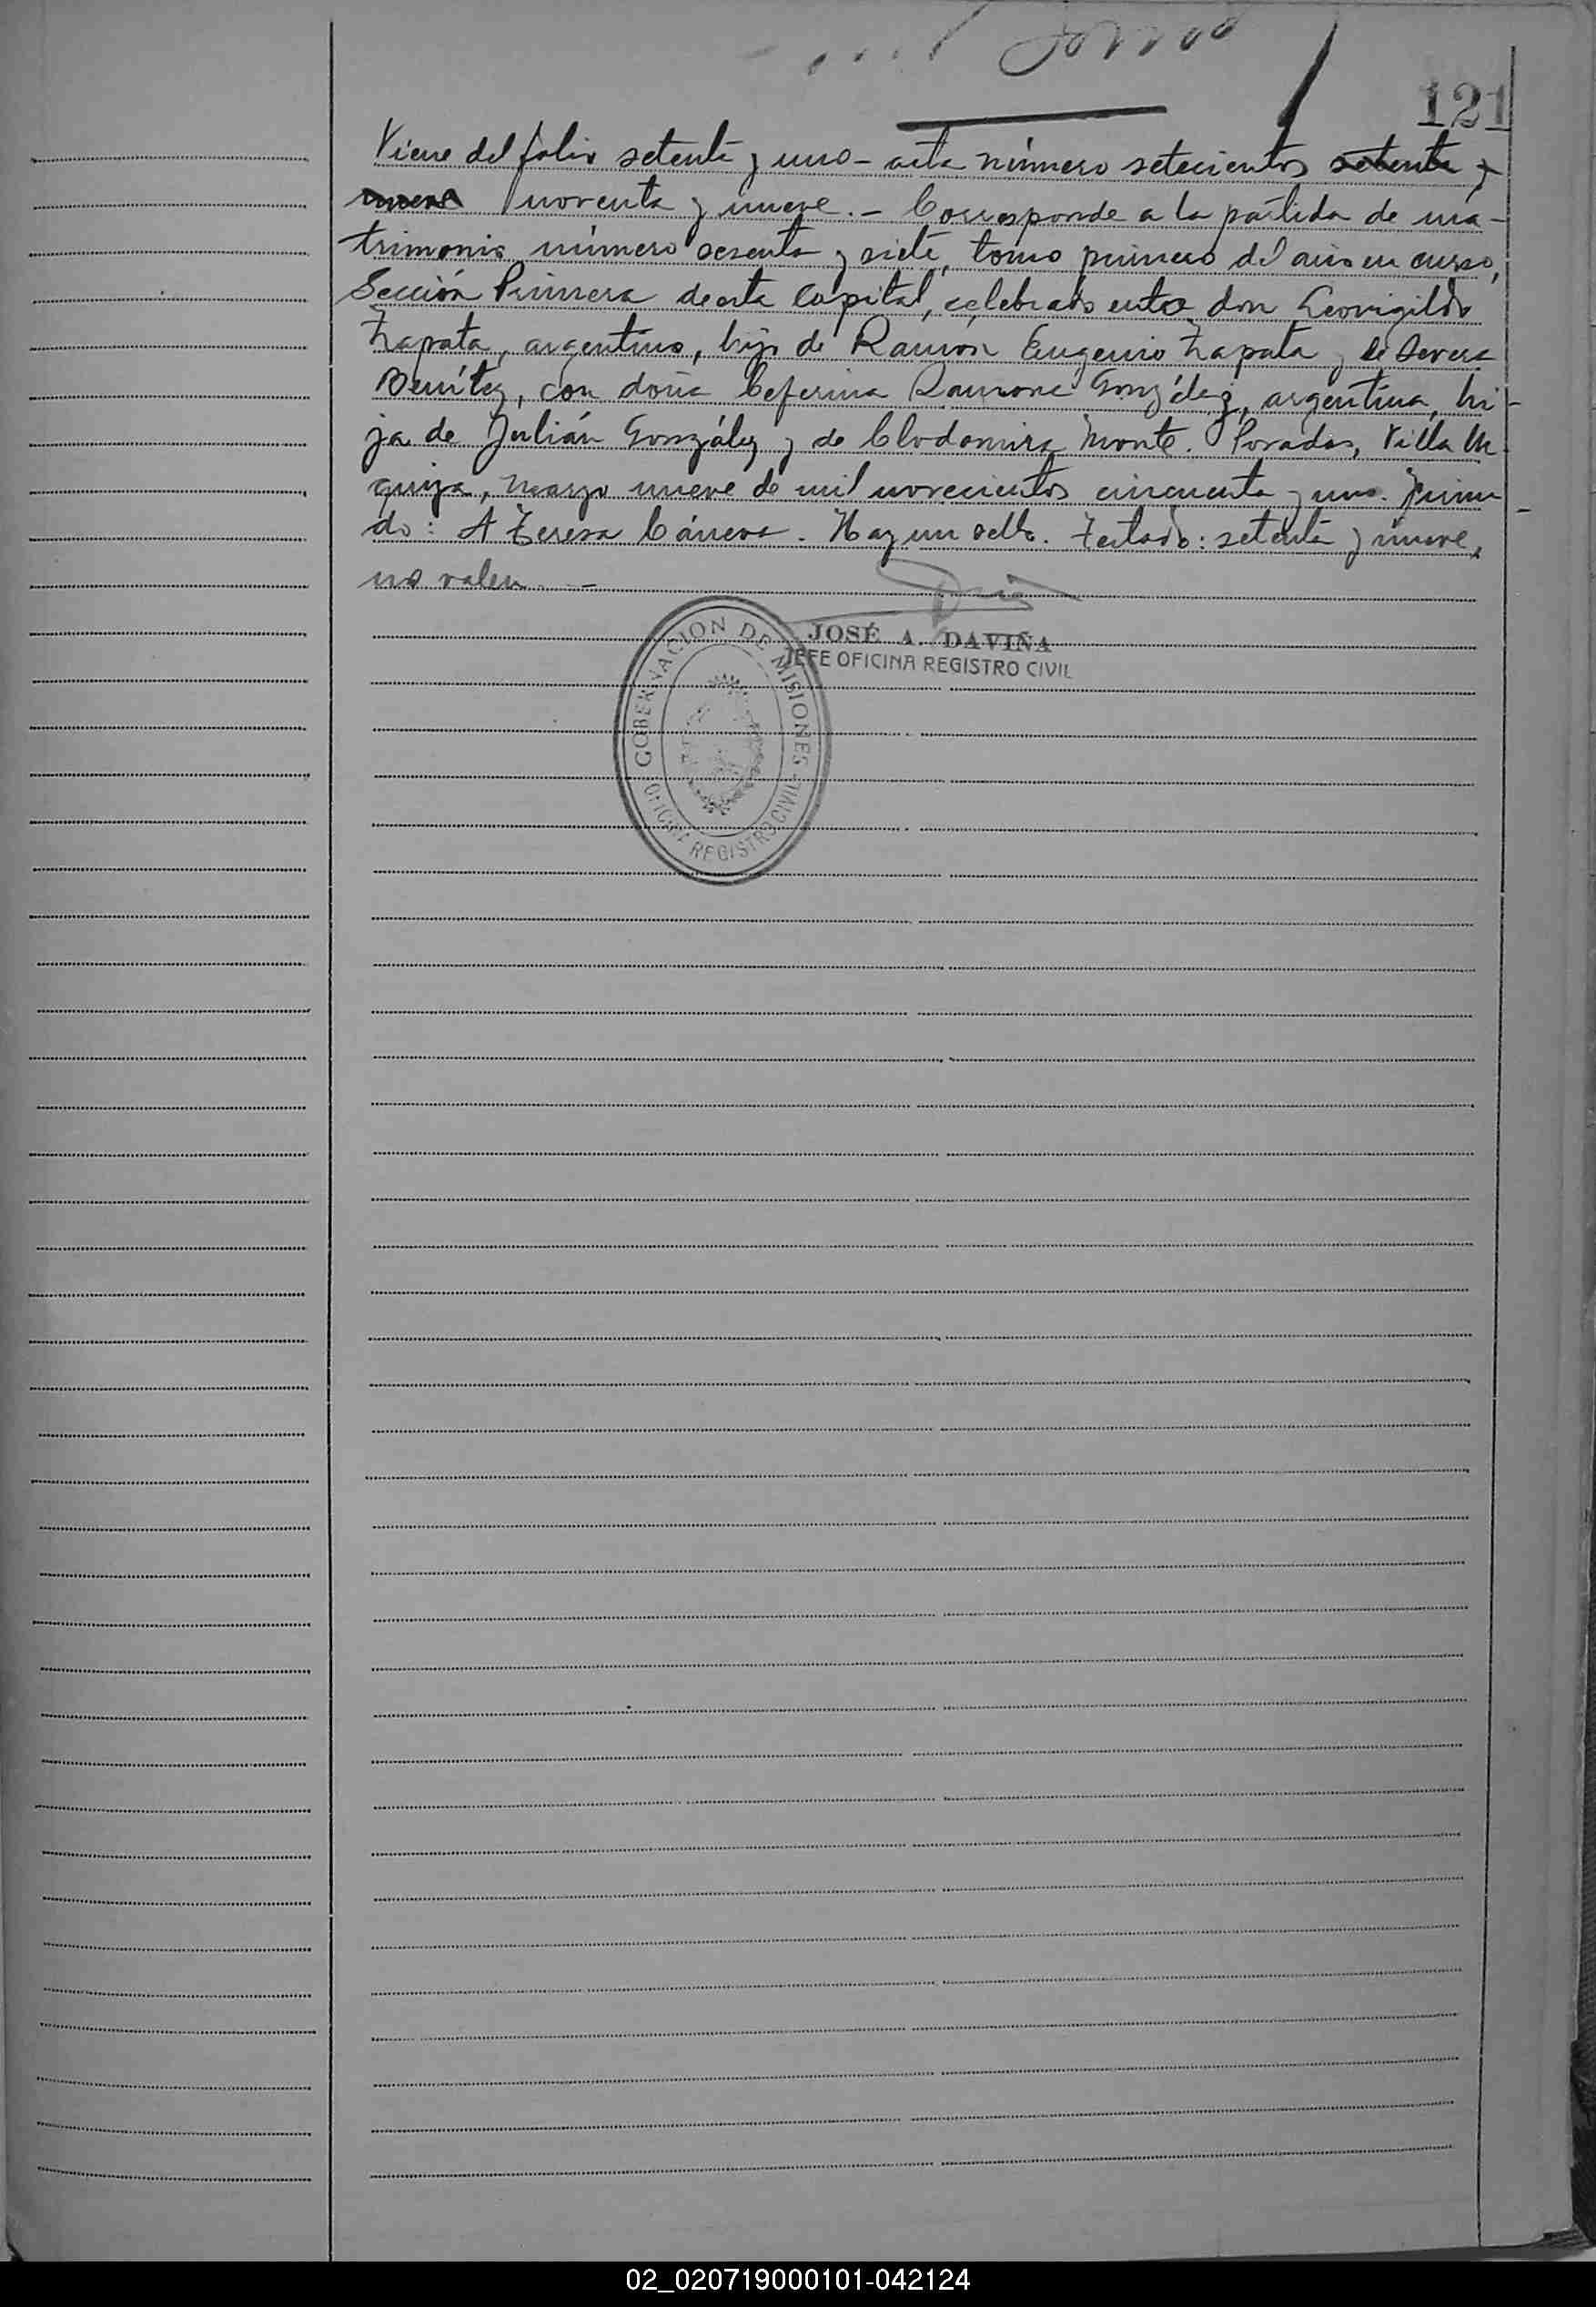 121
Viene del folio setenta y uno - acta número setecientos setenta y
nueve noventa y nueve. - Corresponde a la partida de ma-
trimonio número sesenta y siete, tomo primero del año en curso,
Sección Primera de esta Capital, celebrado entre don Leovigildo
Zapata, argentino, hijo de Ramón Eugenio Zapata y de Severa
Benítez, con doña Ceferina Ramona González, argentina, hi-
ja de Julián González y de Clodomira Monte. Posadas, Villa Ur-
quiza, marzo nueve de mil novecientos cincuenta y uno. Firma-
do: A Teresa Cáneva. Hay un sello. Testado: setenta y nueve,
no valen. -
JOSÉ A. DAVIÑA
JEFE OFICINA REGISTRO CIVIL
GOBERNACION DE MISIONES
OFICINA REGISTRO CIVIL
02_020719000101-042124